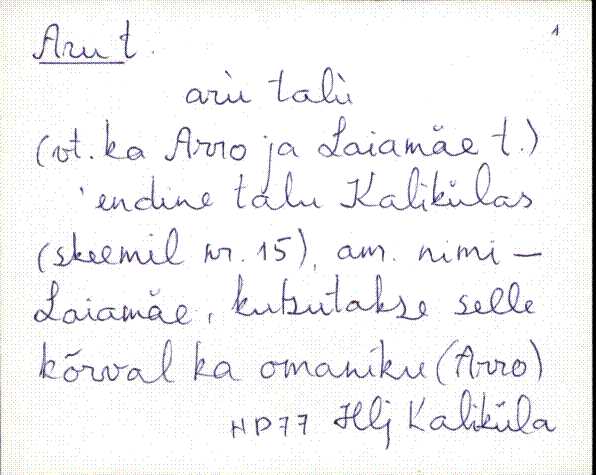 1
Aru t.
arù talù
(vt. ka Arro ja Laiamäe t.)
'endine talu Kalikülas
(skeemil nr. 15), am. nimi –
Laiamäe, kutsutakse selle
kõrval ka omaniku (Arro)
HP77 Hlj Kaliküla